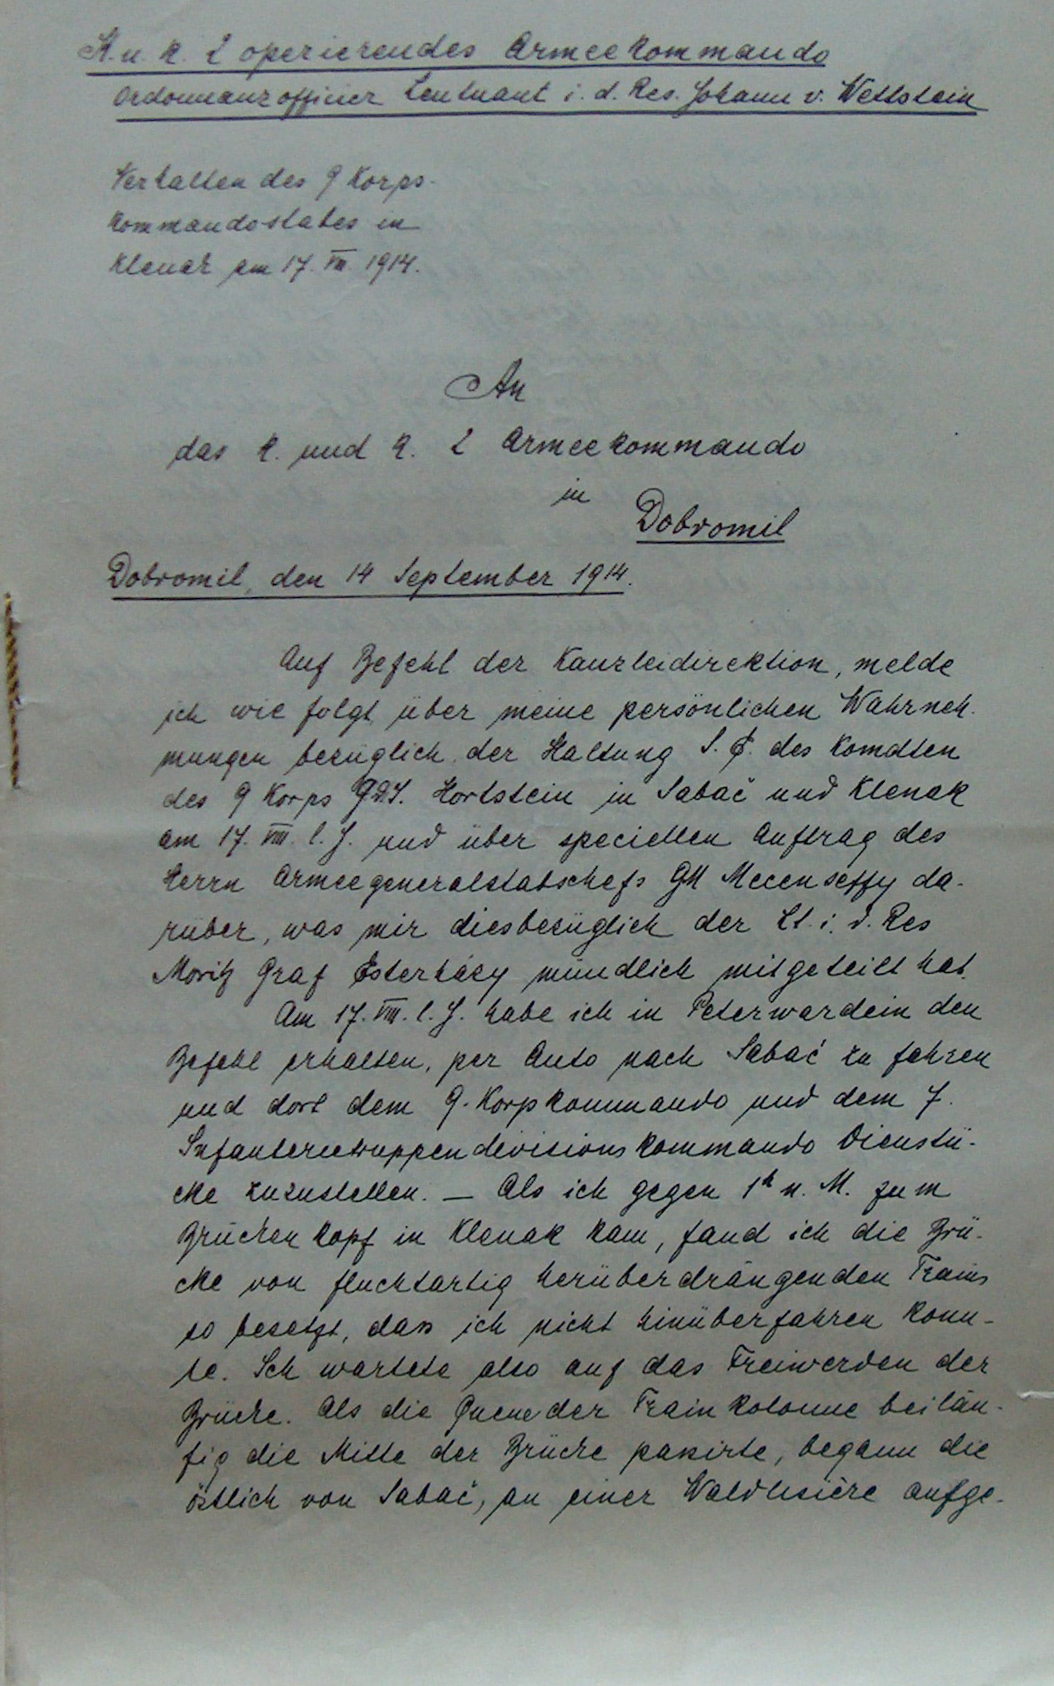 K. u. k. 2 operierendes Armeekommando
Ordonnanzoffizier Leutnant i. d. Res. Johann v. Wettstein
Verhalten des 9 Korps-
kommandostabes in
Klenak am 17. VIII. 1914.
An
das k. und k. 2 Armeekommando
in
Dobromil
Dobromil, den 14 September 1914.
Auf Befehl der Kanzleidirektion, melde
ich wie folgt über meine persönlichen Wahrneh-
mungen bezüglich der Haltung S. E. des Komdten
des 9 Korps GDI. Hortstein in Sabač und Klenak
am 17. VIII. l. J. und über speciellen Auftrag des
Herrn Armeegeneralstabschefs GM Mecenseffy da-
rüber, was mir diesbezüglich der Lt. i. d. Res
Moritz Graf Esterházy mündlich mitgeteilt hat.
Am 17. VIII. l. J. habe ich in Peterwardein den
Befehl erhalten, per Auto nach Sabač zu fahren
und dort dem 9. Korpskommando und dem 7.
Infanterietruppendivisionskommando Dienststü-
cke zuzustellen. — Als ich gegen 1h n. M. zum
Brückenkopf in Klenak kam, fand ich die Brü-
cke von fluchtartig herüberdrängenden Trains
so besetzt, dass ich nicht hinüberfahren konn-
te. Ich wartete also auf das Freiwerden der
Brücke. Als die Queue der Trainkolonne beiläu-
fig die Mitte der Brücke passirte, begann die
östlich von Sabač, an einer Waldlisière aufge-